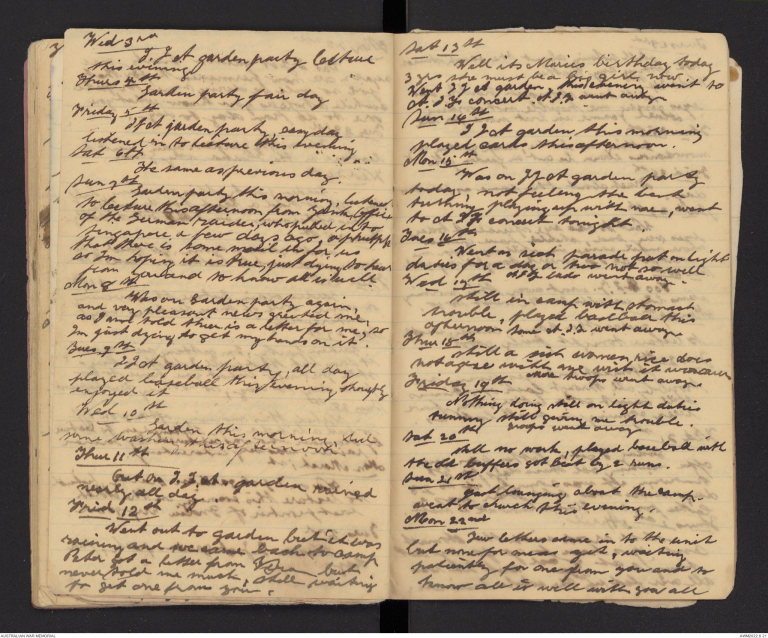 Wed 3rd
J J at garden party lecture
this evening
Thurs 4th
Garden party fair day
Friday 5th
JJ at garden party, easy day
listened in to lecture this evening
Sat 6th
The same as previous day.
Sun 7th
Garden party this morning, listened
to lecture this afternoon from
of the German Raider, who pulled into
Singapore a few days ago,
that there is some mail in for us
so I'm hoping it is true, just dying to hear
from and to know all is well
Mon 8th
Was on Garden party again,
and very pleasant news greeted me,
as I am told there is a letter for me, so
I'm just dying to get my hands on it.
Tues 9th
J J at garden party, all day
played baseball this evening
enjoyed it
Wed 10th
Garden this morning, did
some washing this afternoon
Thur 11th
Out on J.J. at garden rained
nearly all day
Frid 12th
Went out to garden but it was
raining and we came back to camp
Peter got a letter from but
never told me much, still waiting
to get one from you.
Sat 13th
Well its Maries birthday today
3 yrs she must be a big girl now
Went J J at garden, this evening went to
at. J.Js concert. A.I.F. went away.
Sun 14th
J J at garden, this morning
played cards this afternoon.
Mon 15th
Was on JJ at garden party
today, not feeling the best
tummy playing up with me, went
to at JJ concert tonight
Tues 16th
Went on sick parade put on light
duties for a day or two not so well
Wed 17th A.I.F. went away.
Still in camp with stomach
trouble, played baseball this
afternoon some A.I.F. went away.
Thur 18th
Still a sick rice does
not agree with me
Friday 19th more troops went away.
Nothing doing still on light duties
tummy still giving me trouble.
Sat 20th troops went away
Still no work, played baseball with
the old buffers got beat by 2 runs.
Sun 21st
Just lounging about the camp.
went to church this evening.
Mon 22nd
Few letters came in to the unit
but none for me as yet, waiting
patiently for one from you and to
know all is well with you all
AUSTRALIAN WAR MEMORIAL